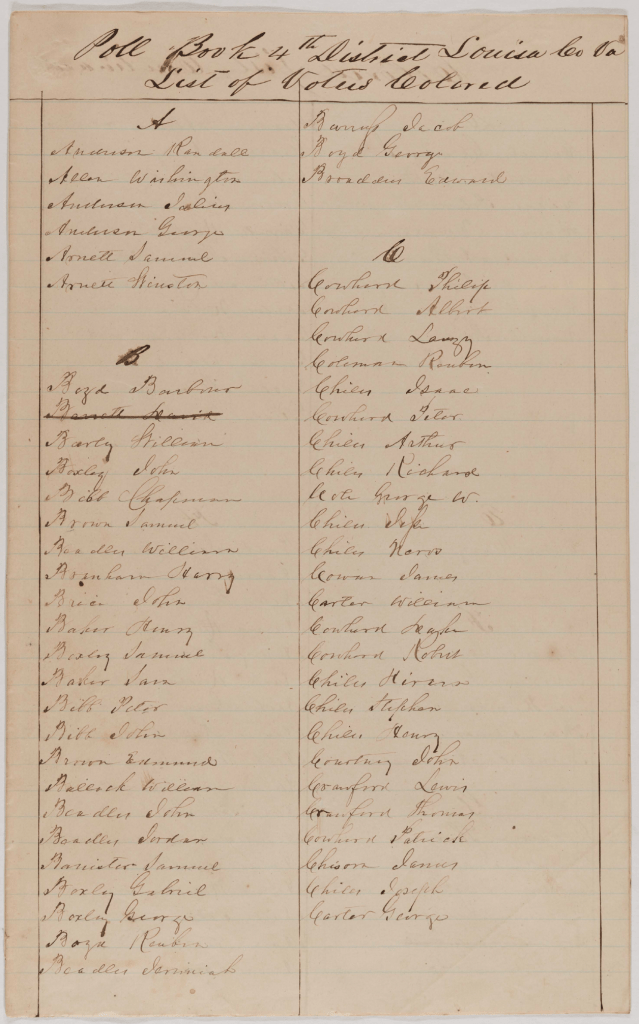 Poll Book 4th District Louisa Co Va
List of Voters Colored
A
Anderson Randall
Allen Washington
Anderson Julius
Anderson George
Arnett Samuel
Arnett Winston
B
Boyd Barbour
Barrett David
Barley William
Boxley John
Bibb Chapman
Brown Samuel
Beadles William
Branham Harry
Brice John
Baker Henry
Boxley Samuel
Baker Sam
Bibb Peter
Bibb John
Brown Edmund
Bullock William
Beadles John
Beadles Jordan
Banister Samuel
Boxley Gabriel
Boxley George
Boyd Reuben
Beadles Jeremiah
Burruss Jacob
Boyd George
Broaddus Edward
C
Cowherd Philip
Cowherd Albert
Cowherd
Coleman Reuben
Chiles Isaac
Cowherd Peter
Chiles Arthur
Chiles Richard
Cole George W.
Chiles
Chiles
Cowan James
Carter William
Cowherd Hugh
Cowherd Robert
Chiles Hiram
Chiles Stephen
Chiles Henry
Courtney John
Crawford Lewis
Crawford Thomas
Cowherd Patrick
Chisom James
Chiles Joseph
Carter George